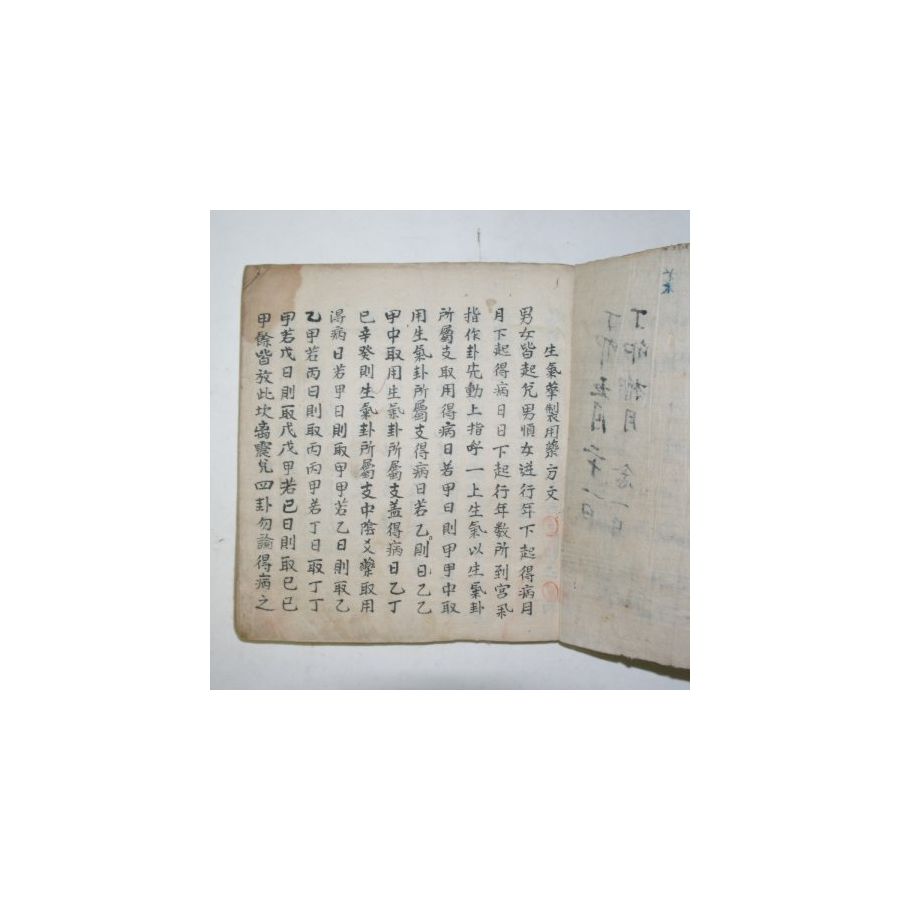 丁卯 月 念一日
丁卯五月 一日
生氣華製用藥方文
男女皆起兌男順女逆行年下起得病月
月下起得病日日下起行年数所到宮
指作卦先動上指呼一上生氣以生氣卦
所屬支取用得病日若甲日則甲甲中取
用生氣卦所屬支得病日若乙則日乙乙
甲中取用生氣卦所屬支盖得病日乙丁
已辛癸則生氣卦所屬支中陰爻藥取用
得病日若甲日則取甲甲若乙日則取乙
乙甲若丙日則取丙丙甲若丁日取丁丁
甲若戊日則取戊戊甲若已日則取已已
甲餘皆放此坎离震兌四卦勿論得病之